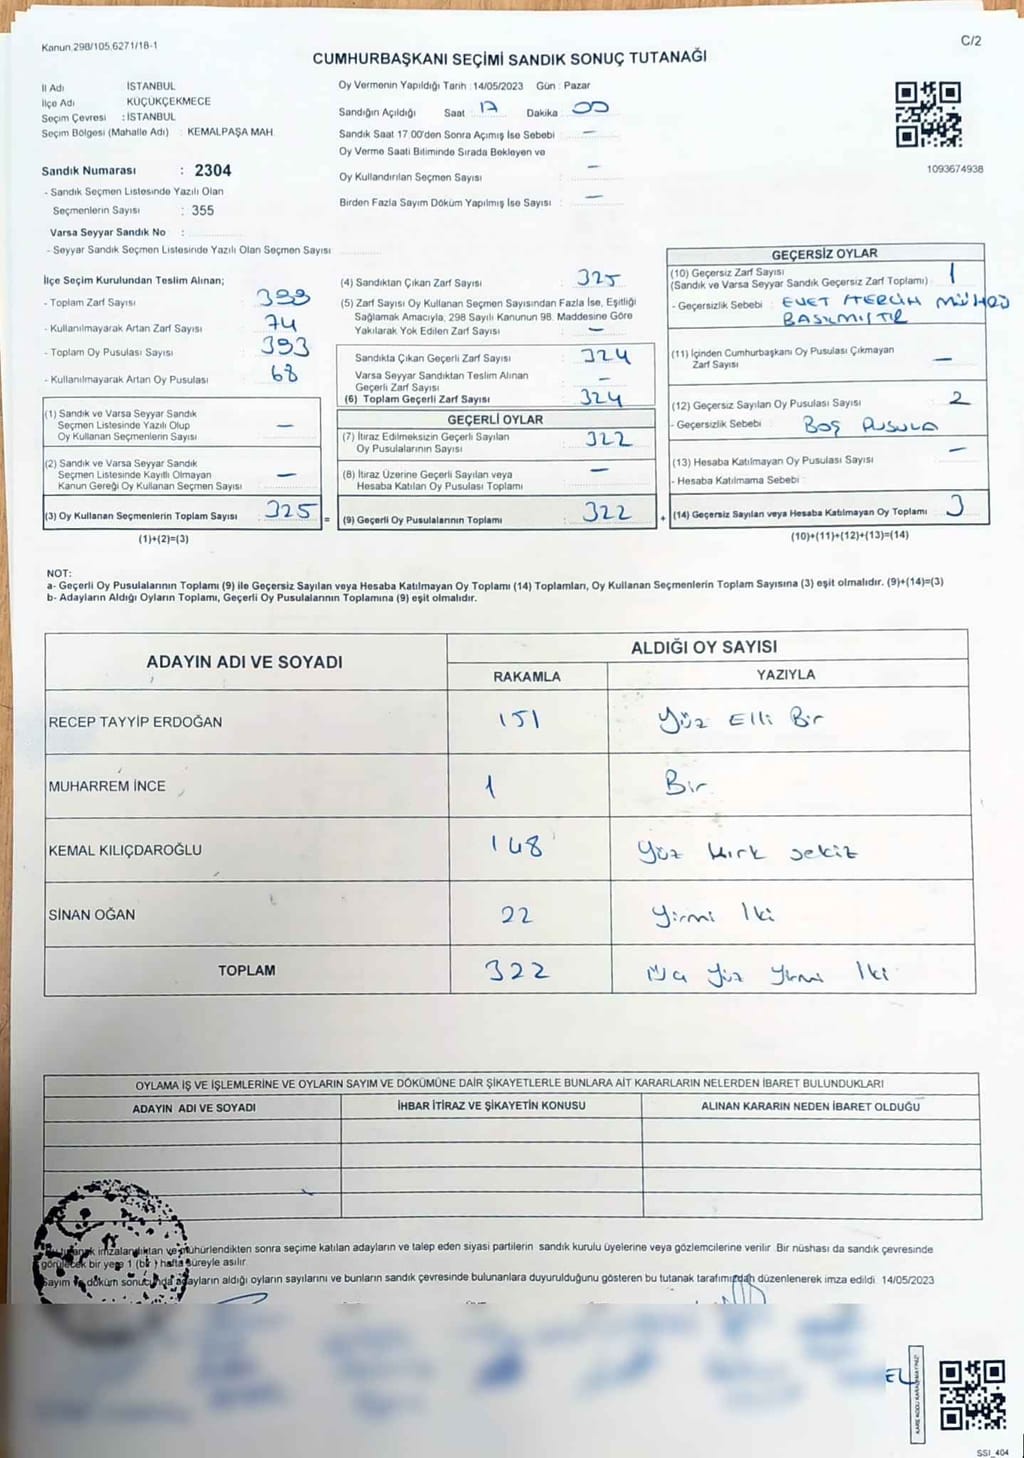 Kanun.298/105,6271/18-1
C/2
CUMHURBAŞKANI SEÇİMİ SANDIK SONUÇ TUTANAĞI
İl Adı İSTANBUL
İlçe Adı KÜÇÜKÇEKMECE
Seçim Çevresi : İSTANBUL
Seçim Bölgesi (Mahalle Adı) : KEMALPAŞA MAH.
Sandık Numarası : 2304
- Sandık Seçmen Listesinde Yazılı Olan
Seçmenlerin Sayısı : 355
Varsa Seyyar Sandık No :
- Seyyar Sandık Seçmen Listesinde Yazılı Olan Seçmen Sayısı
Oy Vermenin Yapıldığı Tarih : 14/05/2023 Gün : Pazar
Sandığın Açıldığı Saat : 17 Dakika : 00
Sandık Saat 17.00'den Sonra Açımış İse Sebebi : —
Oy Verme Saati Bitiminde Sırada Bekleyen ve
Oy Kullandırılan Seçmen Sayısı : —
Birden Fazla Sayım Döküm Yapılmış İse Sayısı : —
1093674938
İlçe Seçim Kurulundan Teslim Alınan;
- Toplam Zarf Sayısı : 399
- Kullanılmayarak Artan Zarf Sayısı : 74
- Toplam Oy Pusulası Sayısı : 393
- Kullanılmayarak Artan Oy Pusulası : 68
(1) Sandık ve Varsa Seyyar Sandık
Seçmen Listesinde Yazılı Olup
Oy Kullanan Seçmenlerin Sayısı : —
(2) Sandık ve Varsa Seyyar Sandık
Seçmen Listesinde Kayıtlı Olmayan
Kanun Gereği Oy Kullanan Seçmen Sayısı : —
(3) Oy Kullanan Seçmenlerin Toplam Sayısı : 325 =
(1)+(2)=(3)
(4) Sandıktan Çıkan Zarf Sayısı : 325
(5) Zarf Sayısı Oy Kullanan Seçmen Sayısından Fazla İse, Eşitliği
Sağlamak Amacıyla, 298 Sayılı Kanunun 98. Maddesine Göre
Yakılarak Yok Edilen Zarf Sayısı : —
Sandıkta Çıkan Geçerli Zarf Sayısı : 324
Varsa Seyyar Sandıktan Teslim Alınan
Geçerli Zarf Sayısı : —
(6) Toplam Geçerli Zarf Sayısı : 324
GEÇERLİ OYLAR
(7) İtiraz Edilmeksizin Geçerli Sayılan
Oy Pusulalarının Sayısı : 322
(8) İtiraz Üzerine Geçerli Sayılan veya
Hesaba Katılan Oy Pusulası Toplamı : —
(9) Geçerli Oy Pusulalarının Toplamı : 322 +
GEÇERSİZ OYLAR
(10) Geçersiz Zarf Sayısı
(Sandık ve Varsa Seyyar Sandık Geçersiz Zarf Toplamı) : 1
- Geçersizlik Sebebi : EVET /TERCİH MÜHRÜ
BASILMIŞTIR
(11) İçinden Cumhurbaşkanı Oy Pusulası Çıkmayan
Zarf Sayısı —
(12) Geçersiz Sayılan Oy Pusulası Sayısı : 2
- Geçersizlik Sebebi : BOŞ PUSULA
(13) Hesaba Katılmayan Oy Pusulası Sayısı : —
- Hesaba Katılmama Sebebi :
(14) Geçersiz Sayılan veya Hesaba Katılmayan Oy Toplamı : 3
(10)+(11)+(12)+(13)=(14)
NOT:
a- Geçerli Oy Pusulalarının Toplamı (9) ile Geçersiz Sayılan veya Hesaba Katılmayan Oy Toplamı (14) Toplamları, Oy Kullanan Seçmenlerin Toplam Sayısına (3) eşit olmalıdır. (9)+(14)=(3)
b- Adayların Aldığı Oyların Toplamı, Geçerli Oy Pusulalarının Toplamına (9) eşit olmalıdır.
ADAYIN ADI VE SOYADI
ALDIĞI OY SAYISI
RAKAMLA YAZIYLA
RECEP TAYYİP ERDOĞAN 151 Yüz Elli Bir
MUHARREM İNCE 1 Bir
KEMAL KILIÇDAROĞLU 148 Yüz kırk sekiz
SİNAN OĞAN 22 Yirmi İki
TOPLAM 322 Üç Yüz Yirmi İki
OYLAMA İŞ VE İŞLEMLERİNE VE OYLARIN SAYIM VE DÖKÜMÜNE DAİR ŞİKAYETLERLE BUNLARA AİT KARARLARIN NELERDEN İBARET BULUNDUKLARI
ADAYIN ADI VE SOYADI
İHBAR İTİRAZ VE ŞİKAYETİN KONUSU
ALINAN KARARIN NEDEN İBARET OLDUĞU
Bu tutanak imzalandıktan ve mühürlendikten sonra seçime katılan adayların ve talep eden siyasi partilerin sandık kurulu üyelerine veya gözlemcilerine verilir. Bir nüshası da sandık çevresinde
görülecek bir yere 1 (bir) hafta süreyle asılır.
Sayım ve döküm sonucunda adayların aldığı oyların sayılarını ve bunların sandık çevresinde bulunanlara duyurulduğunu gösteren bu tutanak tarafımızdan düzenlenerek imza edildi. 14/05/2023
EL
KARE KODU KARALAMAYINIZ!
SSI_404